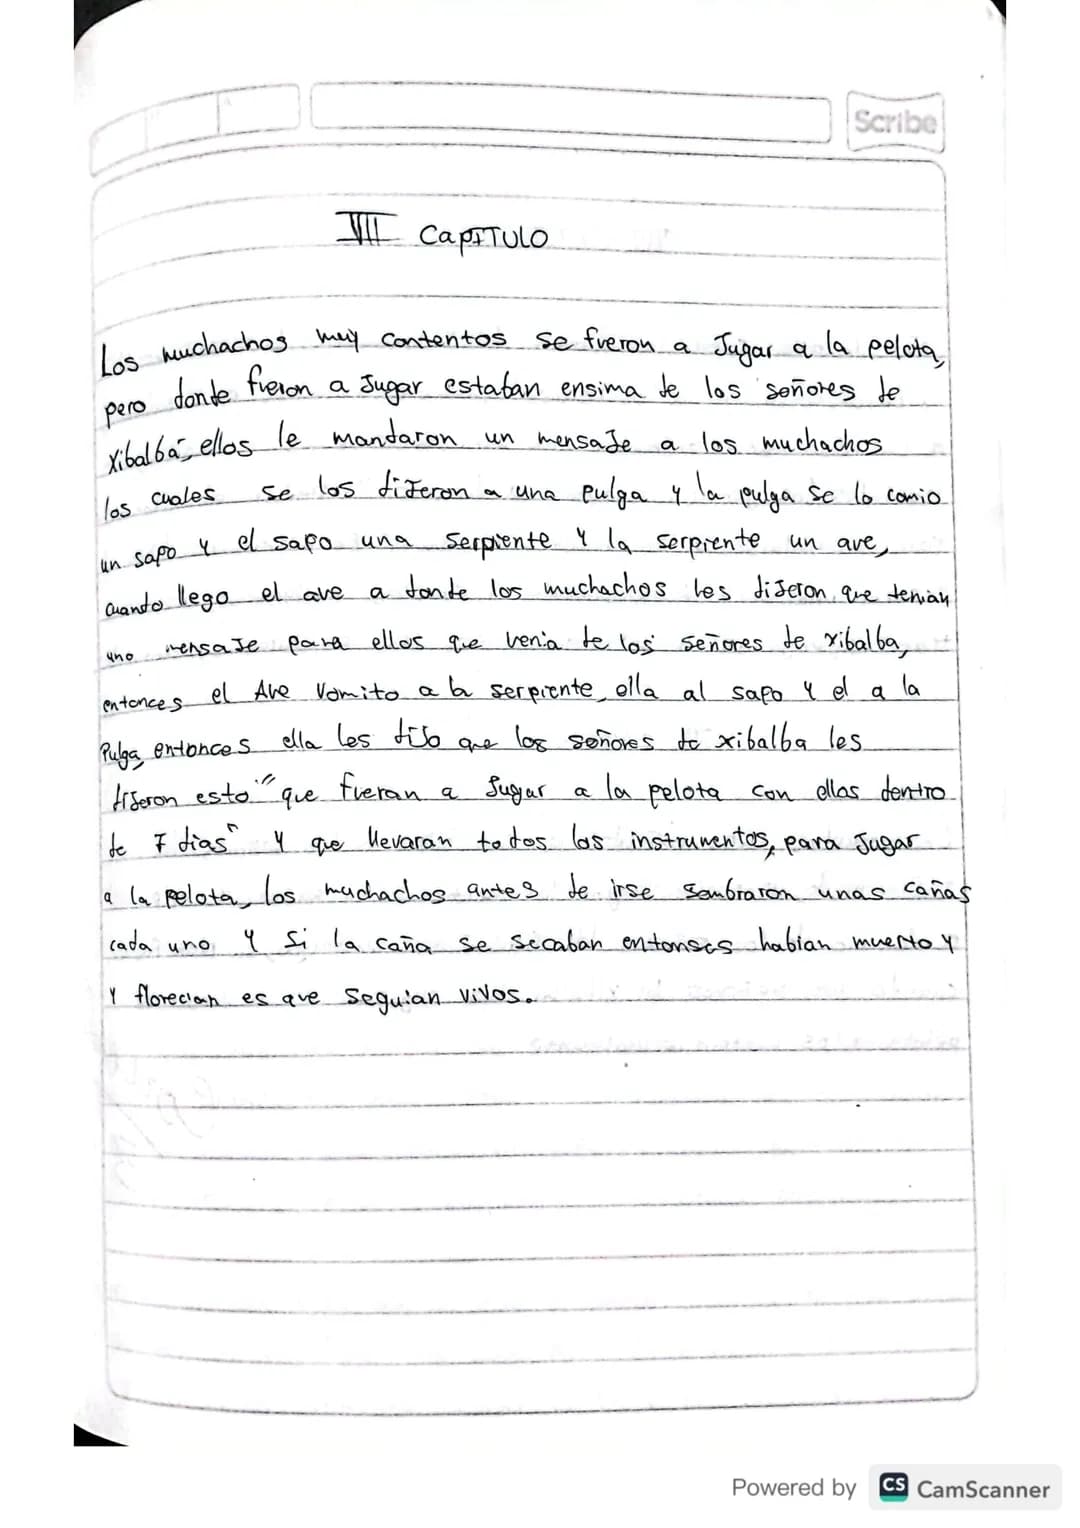 Scribe
VII CapITULO
Los muchachos muy contentos se fueron a Jugar a la pelota,
pero donde fueron a Jugar estaban ensima de los señores de
Xibalbá, ellos le mandaron un mensaJe a los muchachos
los cuales se los diJeron a una pulga y la pulga se lo comio
un sapo y el sapo una serpiente y la serpiente un ave,
cuando llego el ave a donde los muchachos les diJeron que tenian
uno mensaJe para ellos que venia de los señores de xibalba,
entonces el Ave Vomito a la serpiente, ella al sapo y el a la
Pulga, entonces ella les diJo que los señores de xibalba les
diJeron esto "que fueran a Jugar a la pelota con ellos dentro
de 7 dias" y que llevaran todos los instrumentos, para Jugar
a la pelota, los muchachos antes de irse sembraron unas cañas
cada uno y si la caña se secaban entonses habian muerto y
y florecian es que seguian vivos.
Powered by CS CamScanner